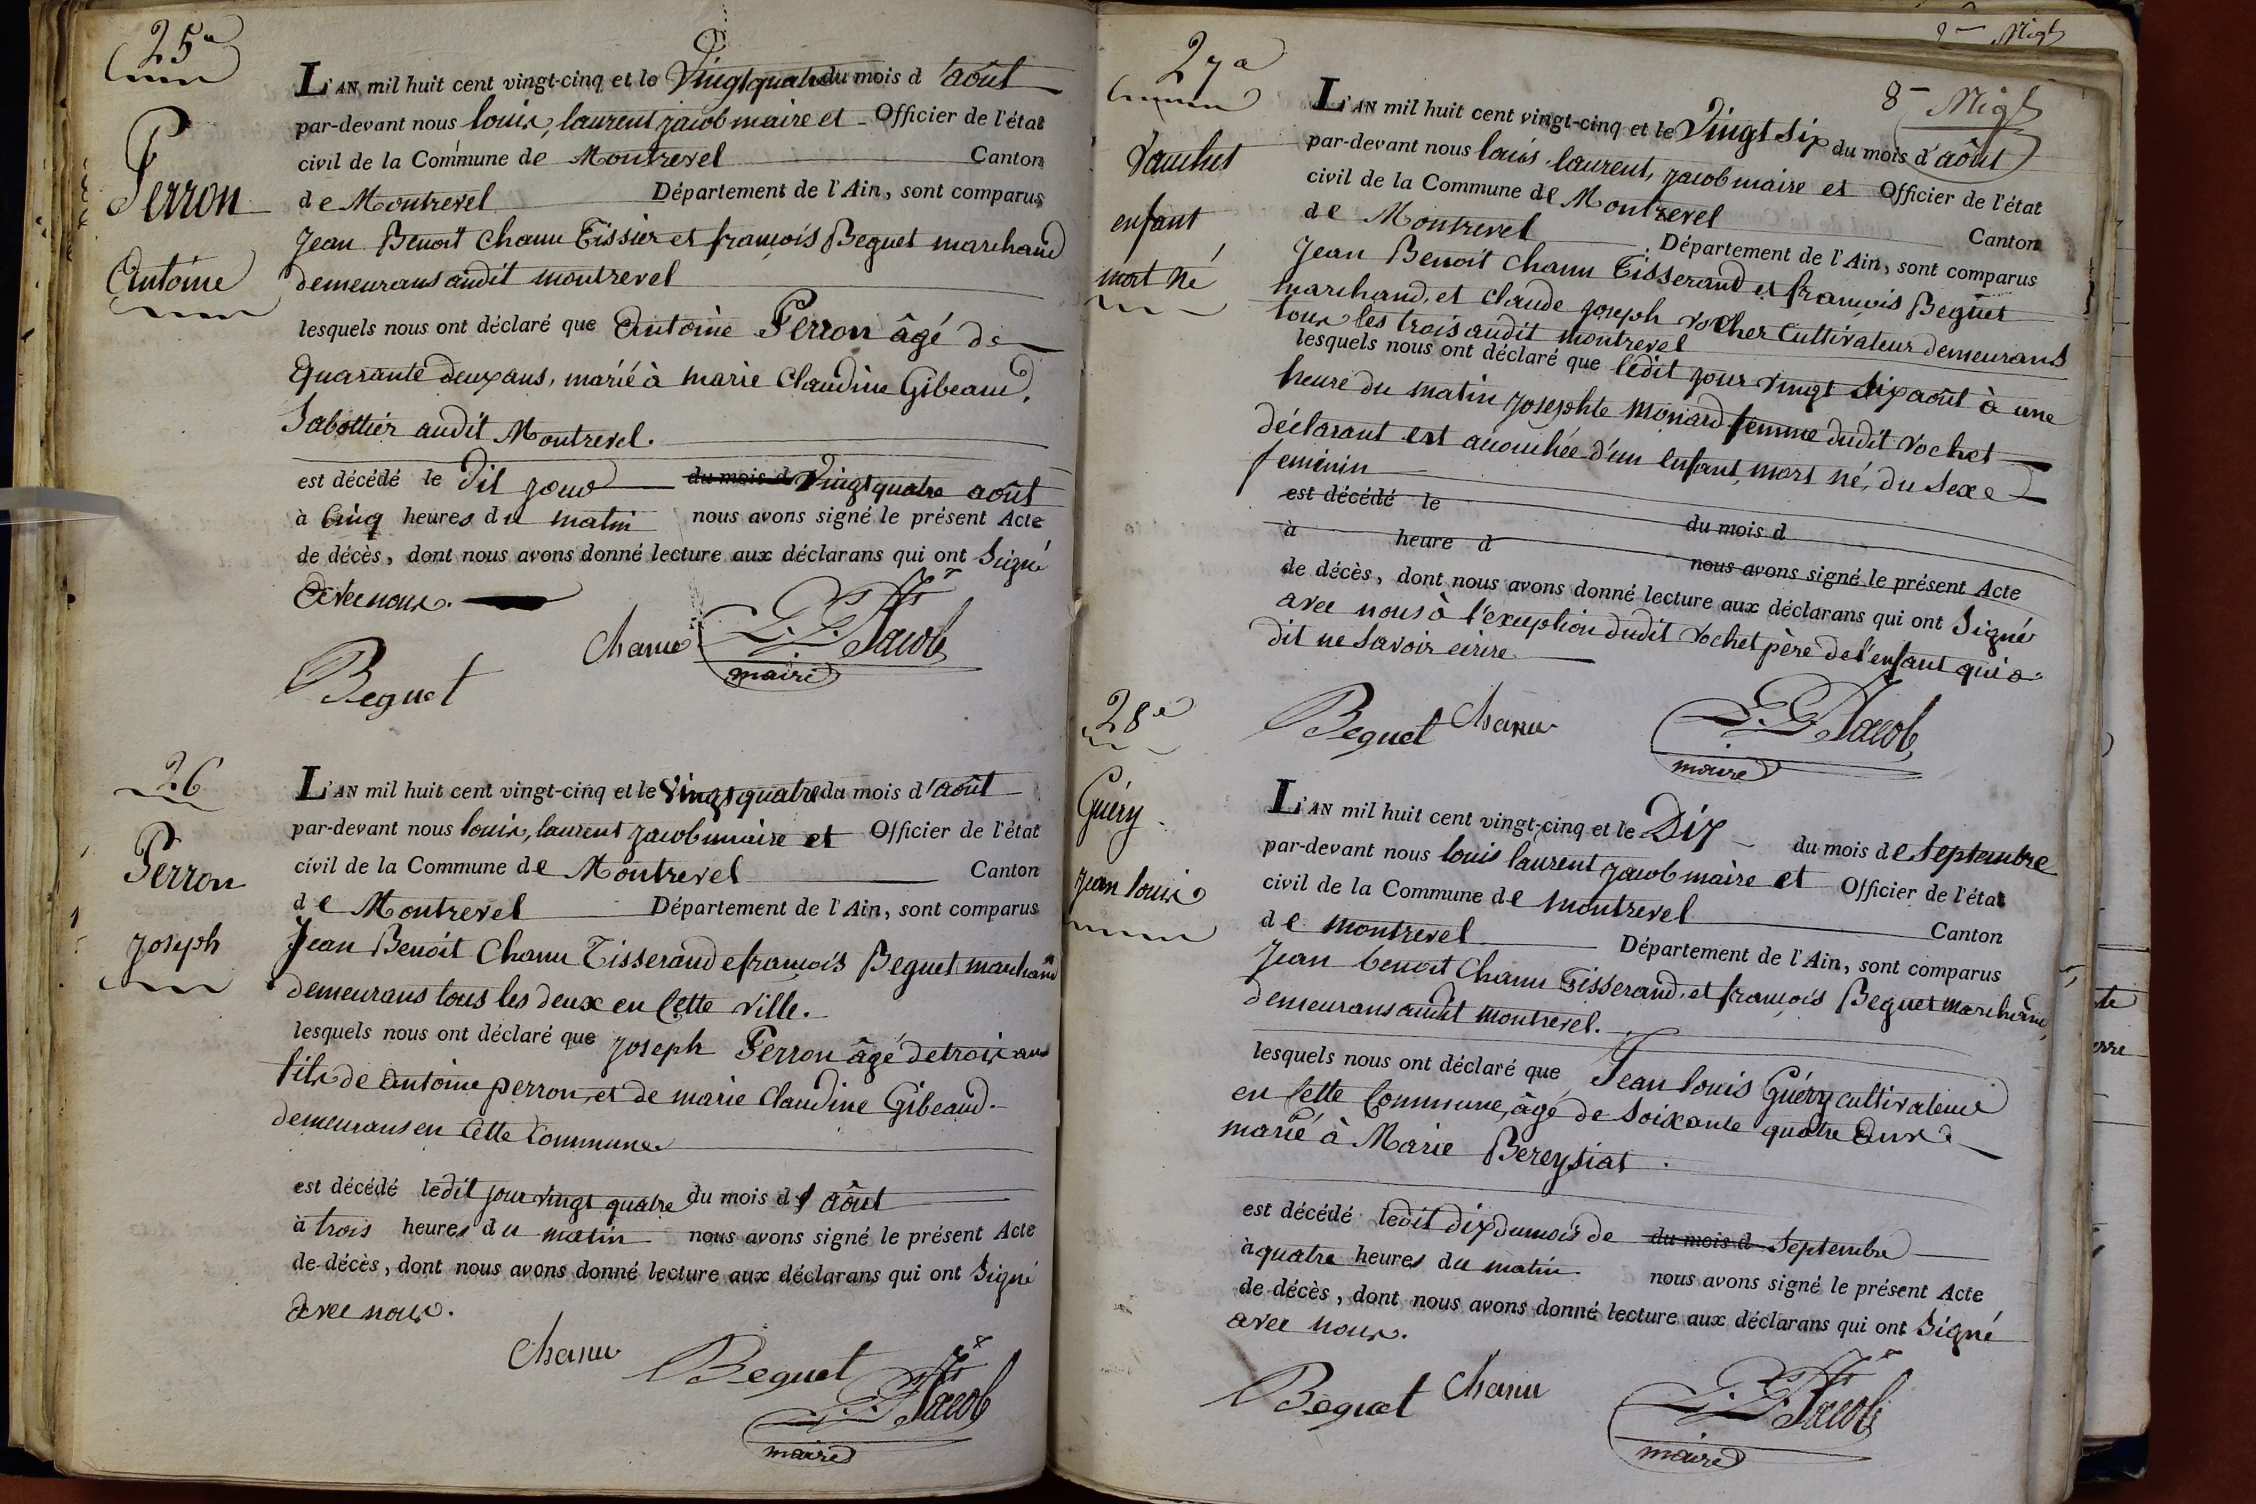 25e
Perron
Antoine
L'AN mil huit cent vingt-cinq et le Vingt quatre du mois d'août
par-devant nous louis, laurent jacob maire et Officier de l'état
civil de la Commune de Montrevel Canton
de Montrevel Département de l'Ain, sont comparus
Jean Benoit Chanu Tissier et françois Beguet marchand
demeurans audit montrevel
lesquels nous ont déclaré que Antoine Perron âgé de
Quarante deux ans, marié à marie Claudine Gibeaud,
Sabottier audit Montrevel.
est décédé le dit jour du mois d Vingt quatre août
à Cinq heures du matin nous avons signé le présent Acte
de décès, dont nous avons donné lecture aux déclarans qui ont Signé
avec nous.
Chanu
Jacob
maire
Beguet
26
Perron
joseph
L'AN mil huit cent vingt-cinq et le Vingt quatre du mois d'août
par-devant nous louis, laurent jacob maire et Officier de l'état
civil de la Commune de Montrevel Canton
de Montrevel Département de l'Ain, sont comparus
Jean Benoit Chanu Tisserand et françois Beguet marchand
demeurans tous les deux en Cette Ville.
lesquels nous ont déclaré que joseph Perron âgé de trois ans
fils de Antoine perron, et de marie Claudine Gibeaud.
demeurans en Cette Commune.
est décédé ledit jour vingt quatre du mois d'août
à trois heures du matin nous avons signé le présent Acte
de décès, dont nous avons donné lecture aux déclarans qui ont Signé
avec nous.
Chanu
Beguet
Jacob
maire
8
27e
enfant
mort né
L'AN mil huit cent vingt-cinq et le Vingt Six du mois d'août
par-devant nous louis laurent, jacob maire et Officier de l'état
civil de la Commune de Montrevel Canton
de Montrevel Département de l'Ain, sont comparus
Jean Benoit Chanu Tisserand et françois Beguet
marchand, et Claude joseph vocher Cultivateur demeurans
tous les trois audit montrevel
lesquels nous ont déclaré que ledit jour vingt Six août à une
heure du matin josephte Monard femme dudit Vochet
déclarant est accouchée d'un enfant mort né, du Sexe
feminin
est décédé le du mois d
à heure d nous avons signé le présent Acte
de décès, dont nous avons donné lecture aux déclarans qui ont Signé
avec nous à l'exception dudit Vochet père de l'enfant qui a
dit ne Savoir écrire
Beguet
Chanu
Jacob
maire
28e
Guéry
jean louis
L'AN mil huit cent vingt-cinq et le Dix du mois de Septembre
par-devant nous louis laurent jacob maire et Officier de l'état
civil de la Commune de montrevel Canton
de montrevel Département de l'Ain, sont comparus
Jean benoit Chanu Tisserand, et françois Beguet marchand
demeurans audit montrevel.
lesquels nous ont déclaré que Jean louis Guéry cultivateur
en Cette Commune, âgé de Soixante quatre ans
marié à Marie Bereysiat.
est décédé ledit dix du mois de du mois d Septembre
à quatre heures du matin nous avons signé le présent Acte
de décès, dont nous avons donné lecture aux déclarans qui ont Signé
avec nous.
Beguet
Chanu
Jacob
maire